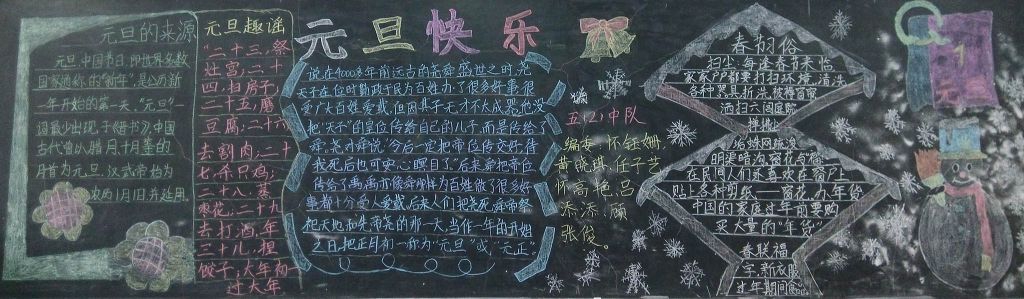 元旦的来源
元旦,中国节日,即世界多数
国家通称的“新年”是公历新
一年开始的第一天。“元旦”一
词最少出现于《晋书》,中国
古代曾以腊月十月等的
月首为元旦,汉武帝始为
农历1月1日,并延用。
元旦趣谣
“二十三,祭
灶宫;二十
四,扫房子;
二十五,磨
豆腐;二十六
去割肉;二十
七,杀只鸡;
二十八,蒸
枣花;二十九
去打酒,年
三十儿,捏
饺子;大年初一
过大年
元旦快乐
说在4000多年前远古的尧舜盛世之时,尧
天子在位时勤政于民为百姓办了很多好事,很
受广大百姓爱戴,但因其子无才不太成器,他没
把“天子”的皇位传给自己的儿子,而是传给了
舜,尧对舜说“今后一定把帝位传交好,待
我死后也可安心瞑目了。”后来舜把帝位
传给了禹,禹亦像舜那样为百姓做了很多好
事都十分受人爱戴,后来人们把尧死,舜帝祭
祀天地和先帝尧的那一天,当作一年的开始
之日,把正月初一称为“元旦”或“元正”
五(2)中队
编委:怀钰姗
黄晓琪,任子艺
怀高艳,吕
添添,顾
张俊。
春节习俗
扫尘:每逢春节来临
家家户户都要打扫环境,清洗
各种器具,拆洗被褥窗帘
洒扫六闾庭院
掸拂
尘垢蛛网,疏浚
明渠暗沟 窗花与福
在民间人们还喜欢在窗户上
贴上各种剪纸——窗花。办年货
中国的家庭过年前要购
买大量的“年货”
春联福
字,新衣服
过年期间
1